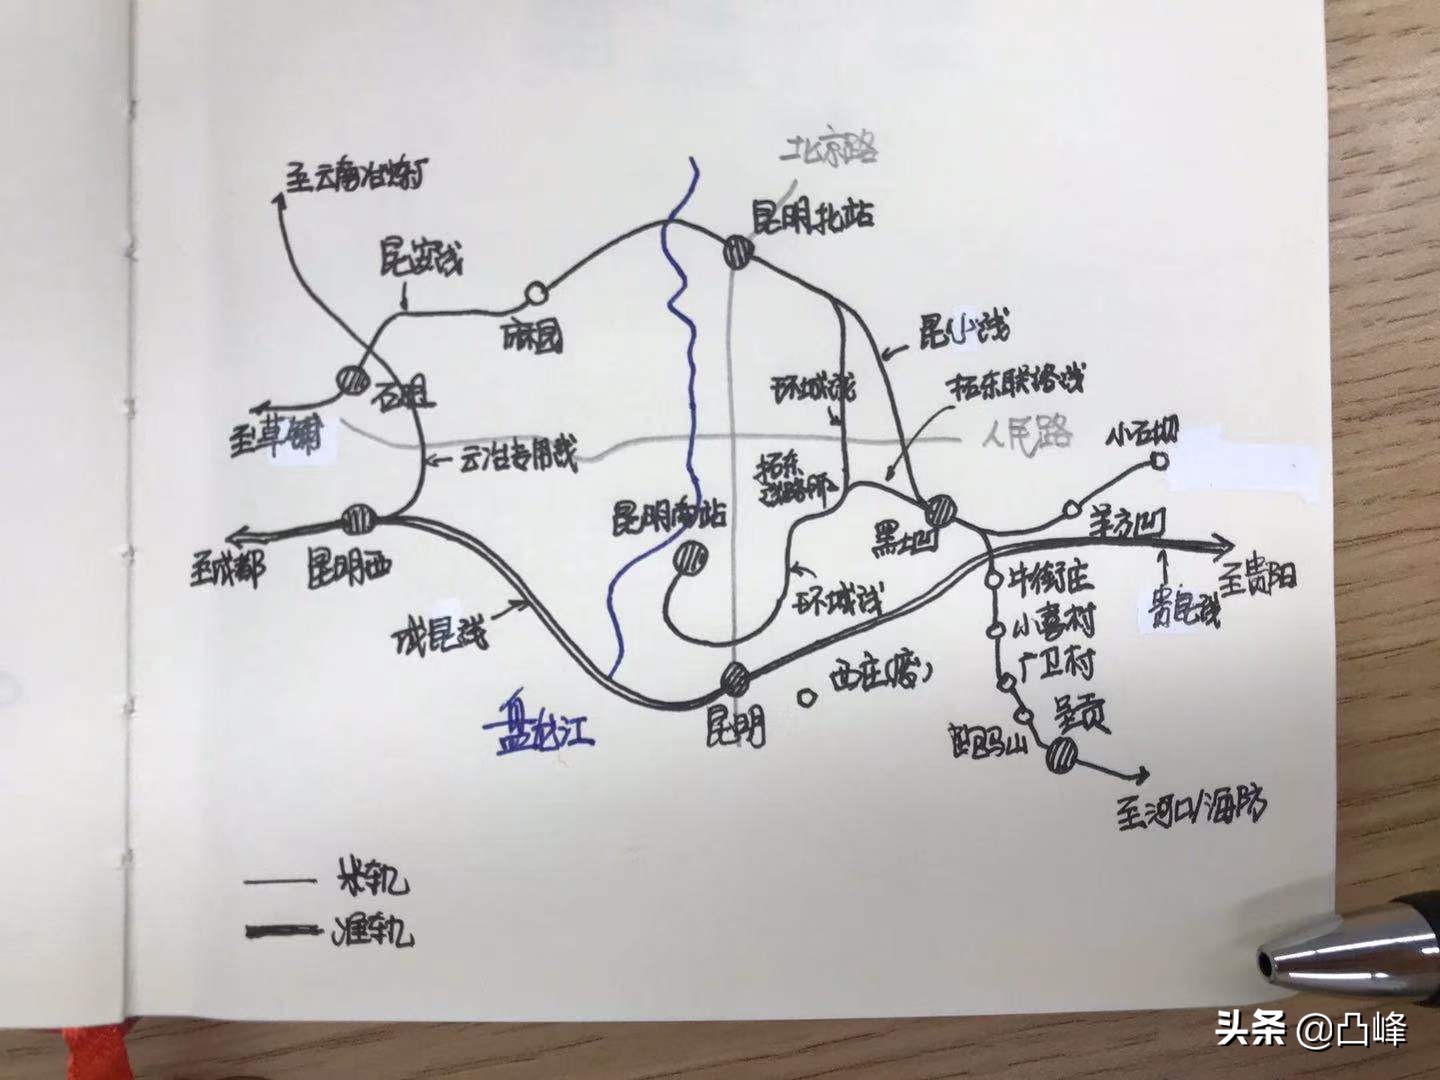 北京路
至云南冶炼厂
昆明北站
昆安线
麻园
昆小线
环城线
拓东联络线
石咀
至草铺
云冶专用线
人民路
小石坝
拓东
线路所
昆明南站
黑土凹
羊方凹
至成都
昆明西
牛街庄
至贵阳
贵昆线
环城线
小喜村
成昆线
广卫村
西庄(房)
盘龙江
昆明
呈贡
跑马山
至河口/海防
米轨
准轨
头条 @凸峰